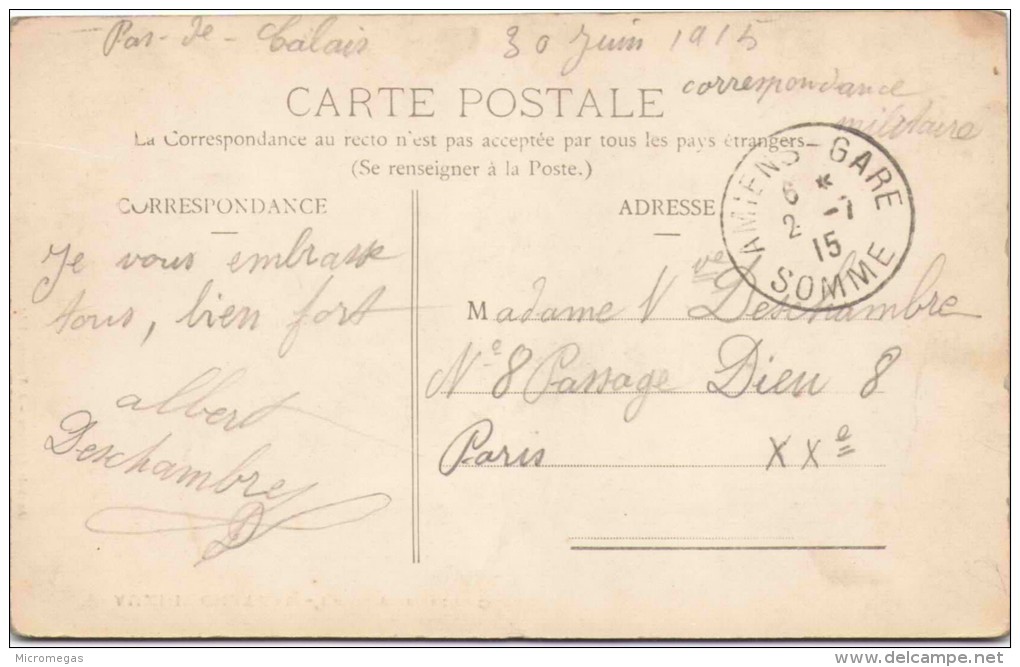 Pas-de-Calais 30 juin 1915
CARTE POSTALE
correspondance
militaire
La Correspondance au recto n'est pas acceptée par tous les pays étrangers
(Se renseigner à la Poste.)
AMIENS-GARE
6 *
2 -7
15
SOMME
CORRESPONDANCE
Je vous embrasse
tous, bien fort
albert
Deschambre
D
ADRESSE
Madame Vve Deschambre
N° 8 Passage Dieu 8
Paris XXe
Micromegas
delcampe.net